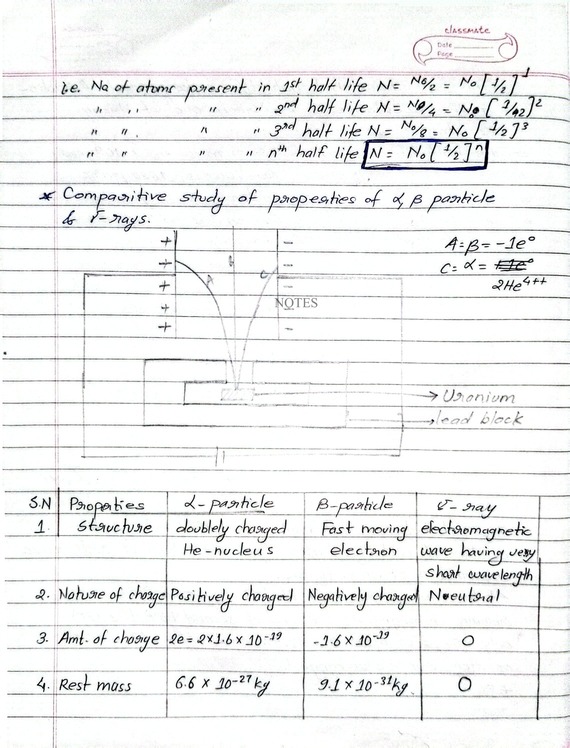 classmate
Date
Page
i.e. No of atoms present in 1st half life N = No/2 = No [1/2]^1
" " " " 2nd half life N = No/4 = No [1/2]^2
" " " " 3rd half life N = No/8 = No [1/2]^3
" " " " nth half life N = No [1/2]^n
* Comparitive study of properties of α, β particle
& γ-rays.
+ -
+ -
+ -
+ -
+ -
A = β = -1e°
C = α =
2He4++
A B C
NOTES
→ Uranium
→ lead block
S.N Properties α-particle β-particle γ-ray
1. Structure doublely charged Fast moving electromagnetic
He-nucleus electron wave having very
short wavelength
2. Nature of charge Positively charged Negatively charged Neutral
3. Amt. of charge 2e = 2×1.6×10^-19 -1.6×10^-19 0
4. Rest mass 6.6 × 10^-27 kg 9.1 × 10^-31 kg 0